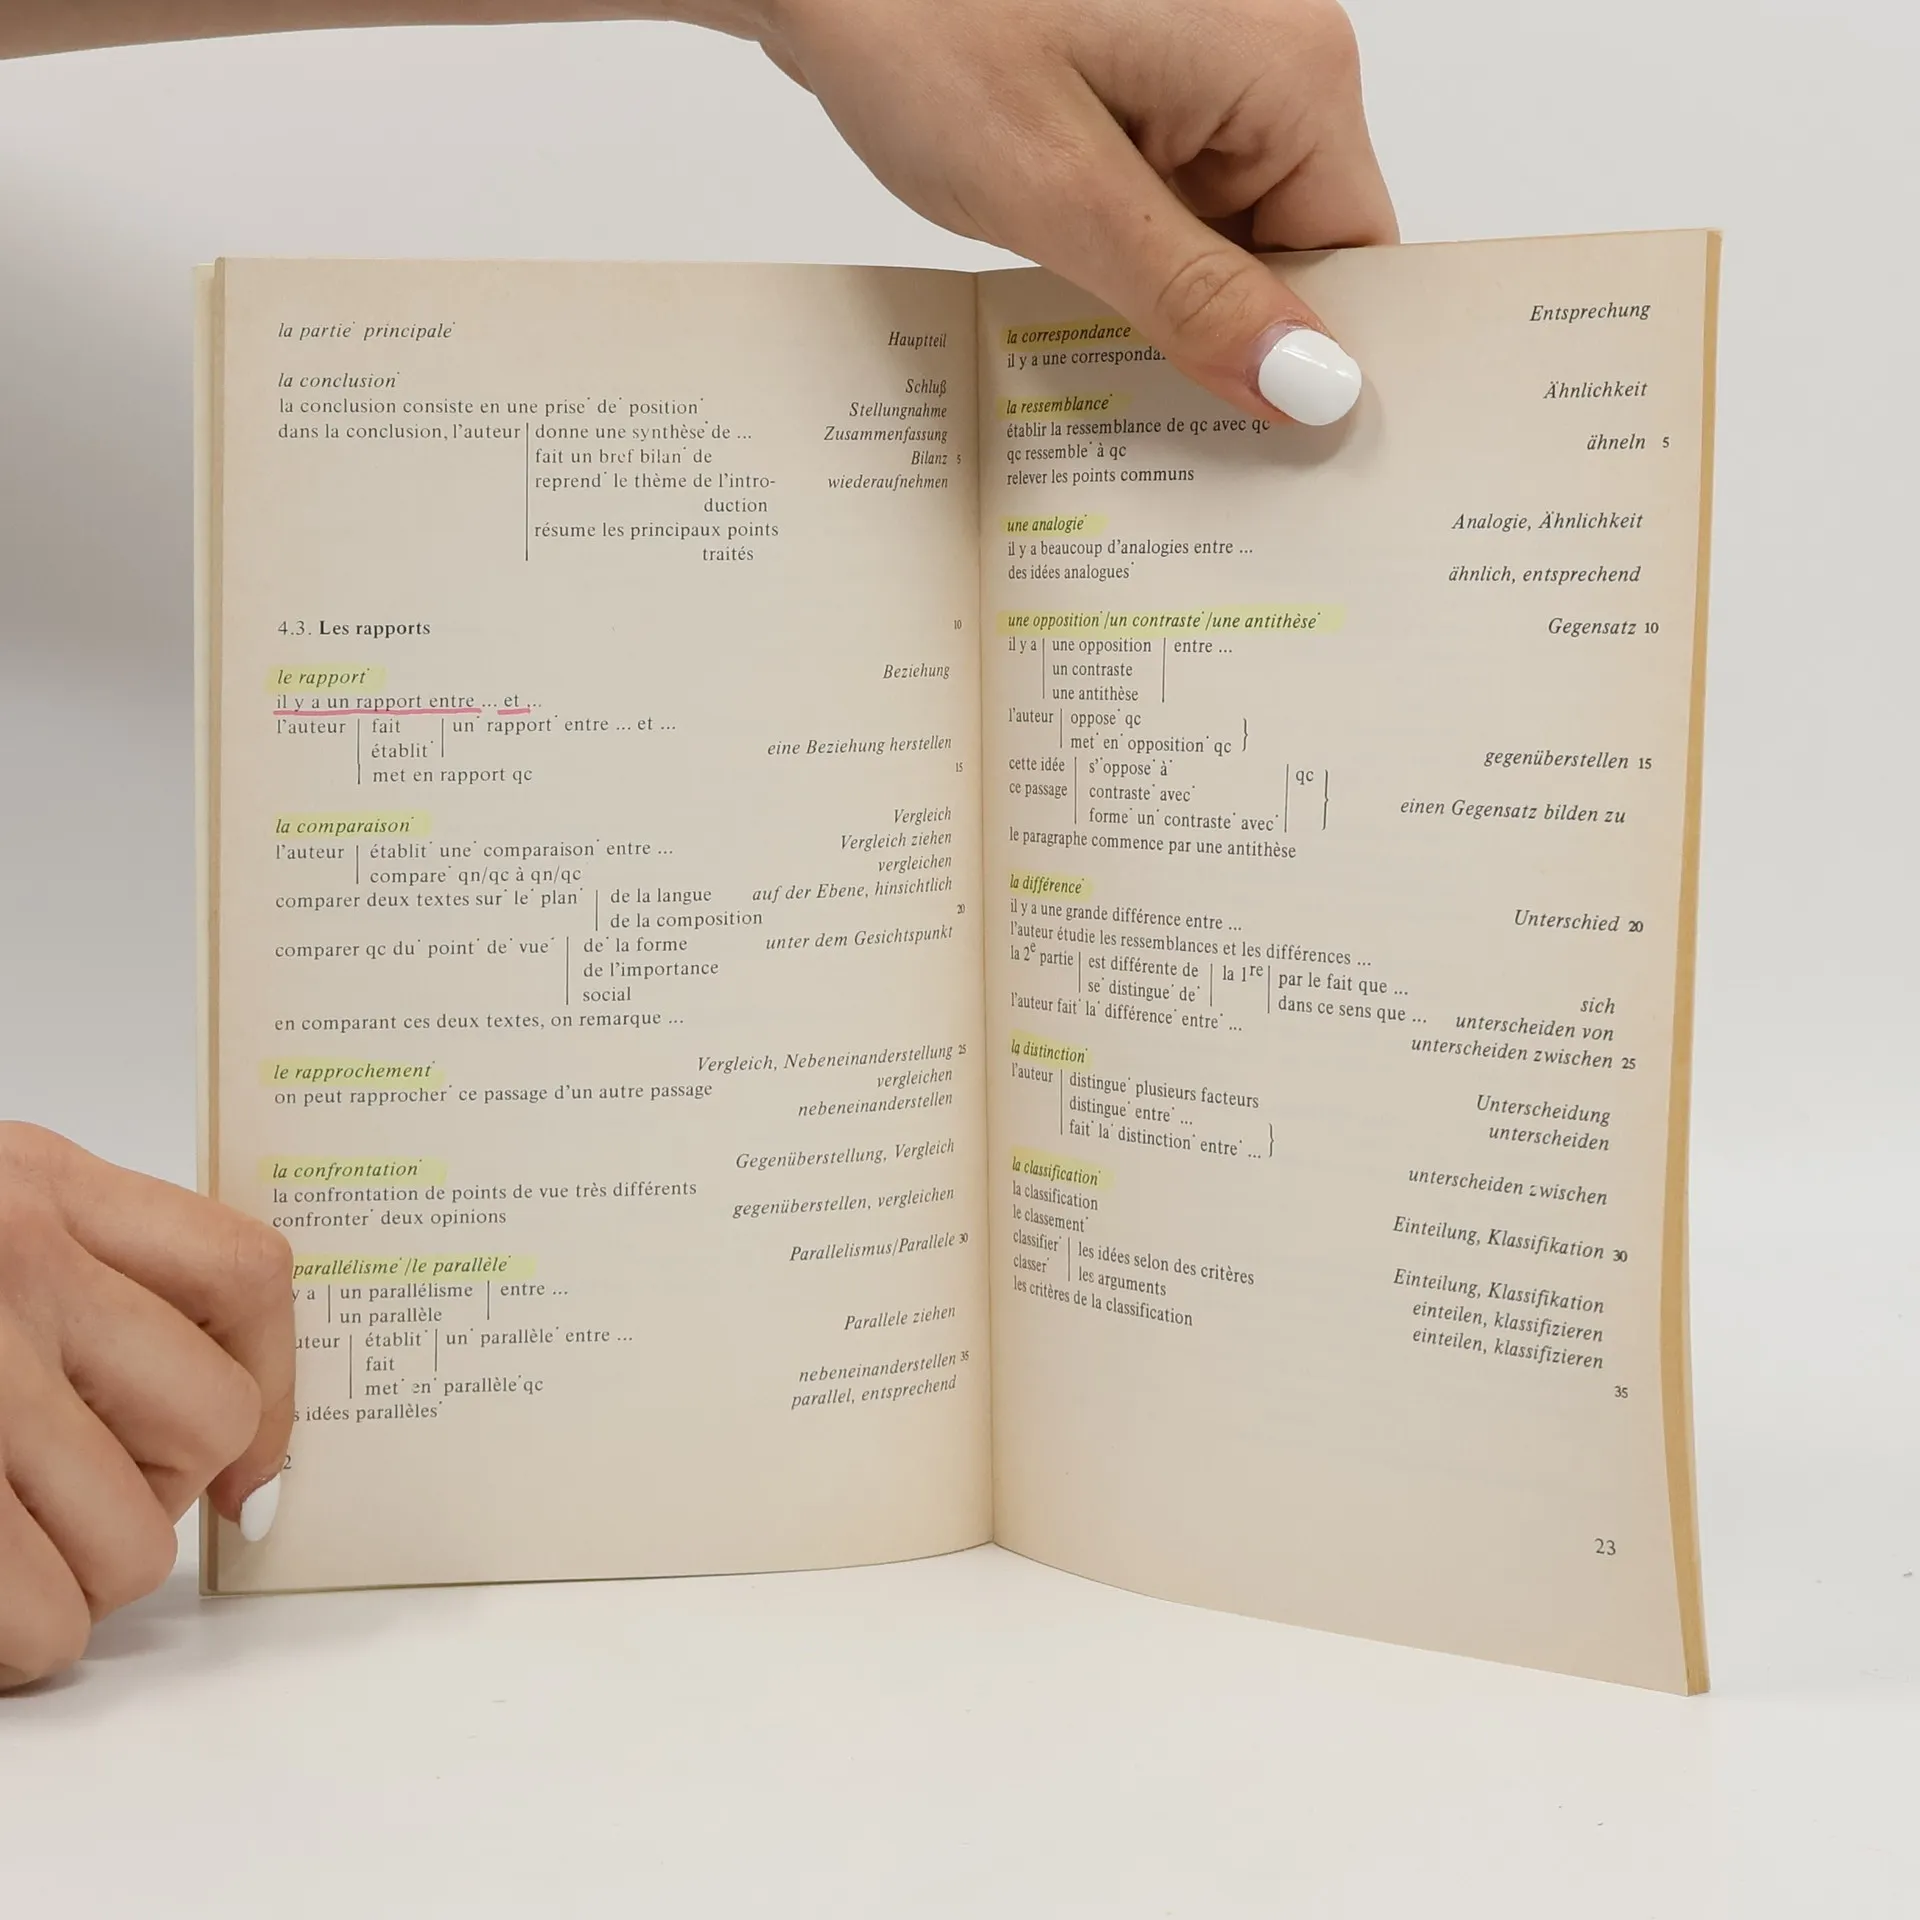 la partie principale Hauptteil
la conclusion Schluß
la conclusion consiste en une prise de position Stellungnahme
dans la conclusion, l'auteur | donne une synthèse de ... Zusammenfassung
fait un bref bilan de Bilanz 5
reprend le thème de l'intro- wiederaufnehmen
duction
résume les principaux points
traités
4.3. Les rapports 10
le rapport Beziehung
il y a un rapport entre ... et ...
l'auteur | fait | un rapport entre ... et ...
établit | eine Beziehung herstellen
met en rapport qc 15
la comparaison Vergleich
l'auteur | établit une comparaison entre ... Vergleich ziehen
compare qn/qc à qn/qc vergleichen
comparer deux textes sur le plan | de la langue auf der Ebene, hinsichtlich
de la composition 20
comparer qc du point de vue | de la forme unter dem Gesichtspunkt
de l'importance
social
en comparant ces deux textes, on remarque ...
le rapprochement Vergleich, Nebeneinanderstellung 25
on peut rapprocher ce passage d'un autre passage vergleichen
nebeneinanderstellen
la confrontation Gegenüberstellung, Vergleich
la confrontation de points de vue très différents
confronter deux opinions gegenüberstellen, vergleichen
parallélisme/le parallèle Parallelismus/Parallele 30
y a | un parallélisme | entre ...
un parallèle
uteur | établit | un parallèle entre ... Parallele ziehen
fait
met en parallèle qc nebeneinanderstellen 35
s idées parallèles parallel, entsprechend
2
la correspondance Entsprechung
il y a une corresponda
la ressemblance Ähnlichkeit
établir la ressemblance de qc avec qc
qc ressemble à qc ähneln 5
relever les points communs
une analogie Analogie, Ähnlichkeit
il y a beaucoup d'analogies entre ...
des idées analogues ähnlich, entsprechend
une opposition/un contraste/une antithèse Gegensatz 10
il y a | une opposition | entre ...
un contraste
une antithèse
l'auteur | oppose qc
met en opposition qc } gegenüberstellen 15
cette idée | s'oppose à | qc }
ce passage | contraste avec einen Gegensatz bilden zu
forme un contraste avec
le paragraphe commence par une antithèse
la différence Unterschied 20
il y a une grande différence entre ...
l'auteur étudie les ressemblances et les différences ...
la 2e partie | est différente de | la 1re | par le fait que ... sich
se distingue de | dans ce sens que ... unterscheiden von
l'auteur fait la différence entre ... unterscheiden zwischen 25
la distinction Unterscheidung
l'auteur | distingue plusieurs facteurs unterscheiden
distingue entre ...
fait la distinction entre ... } unterscheiden zwischen
la classification Einteilung, Klassifikation 30
la classification
le classement Einteilung, Klassifikation
classifier | les idées selon des critères einteilen, klassifizieren
classer | les arguments einteilen, klassifizieren
les critères de la classification
35
23